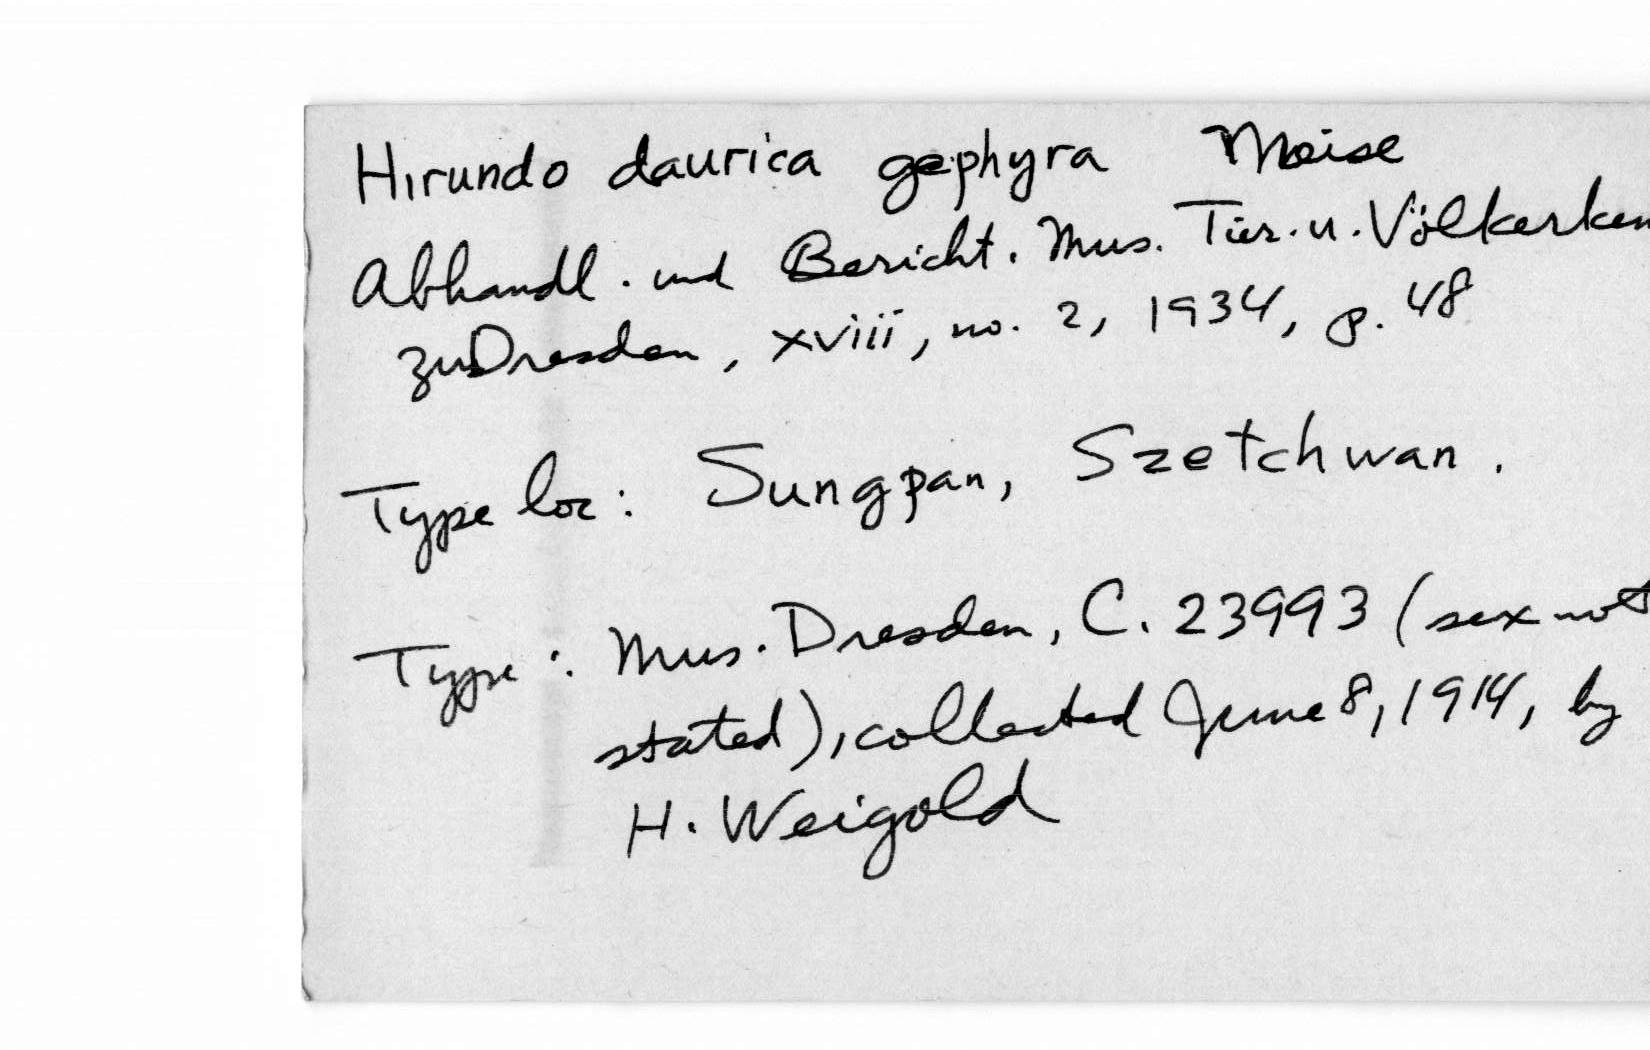 Hirundo daurica gephyra Meise
Abhandl. und Bericht. Mus. Tier. u. Völkerken
zu Dresden, xviii, no. 2, 1934, p. 48
Type loc: Sungpan, Szetchwan.
Type: Mus. Dresden, C. 23993 (sex not
stated), collected June 8, 1914, by
H. Weigold